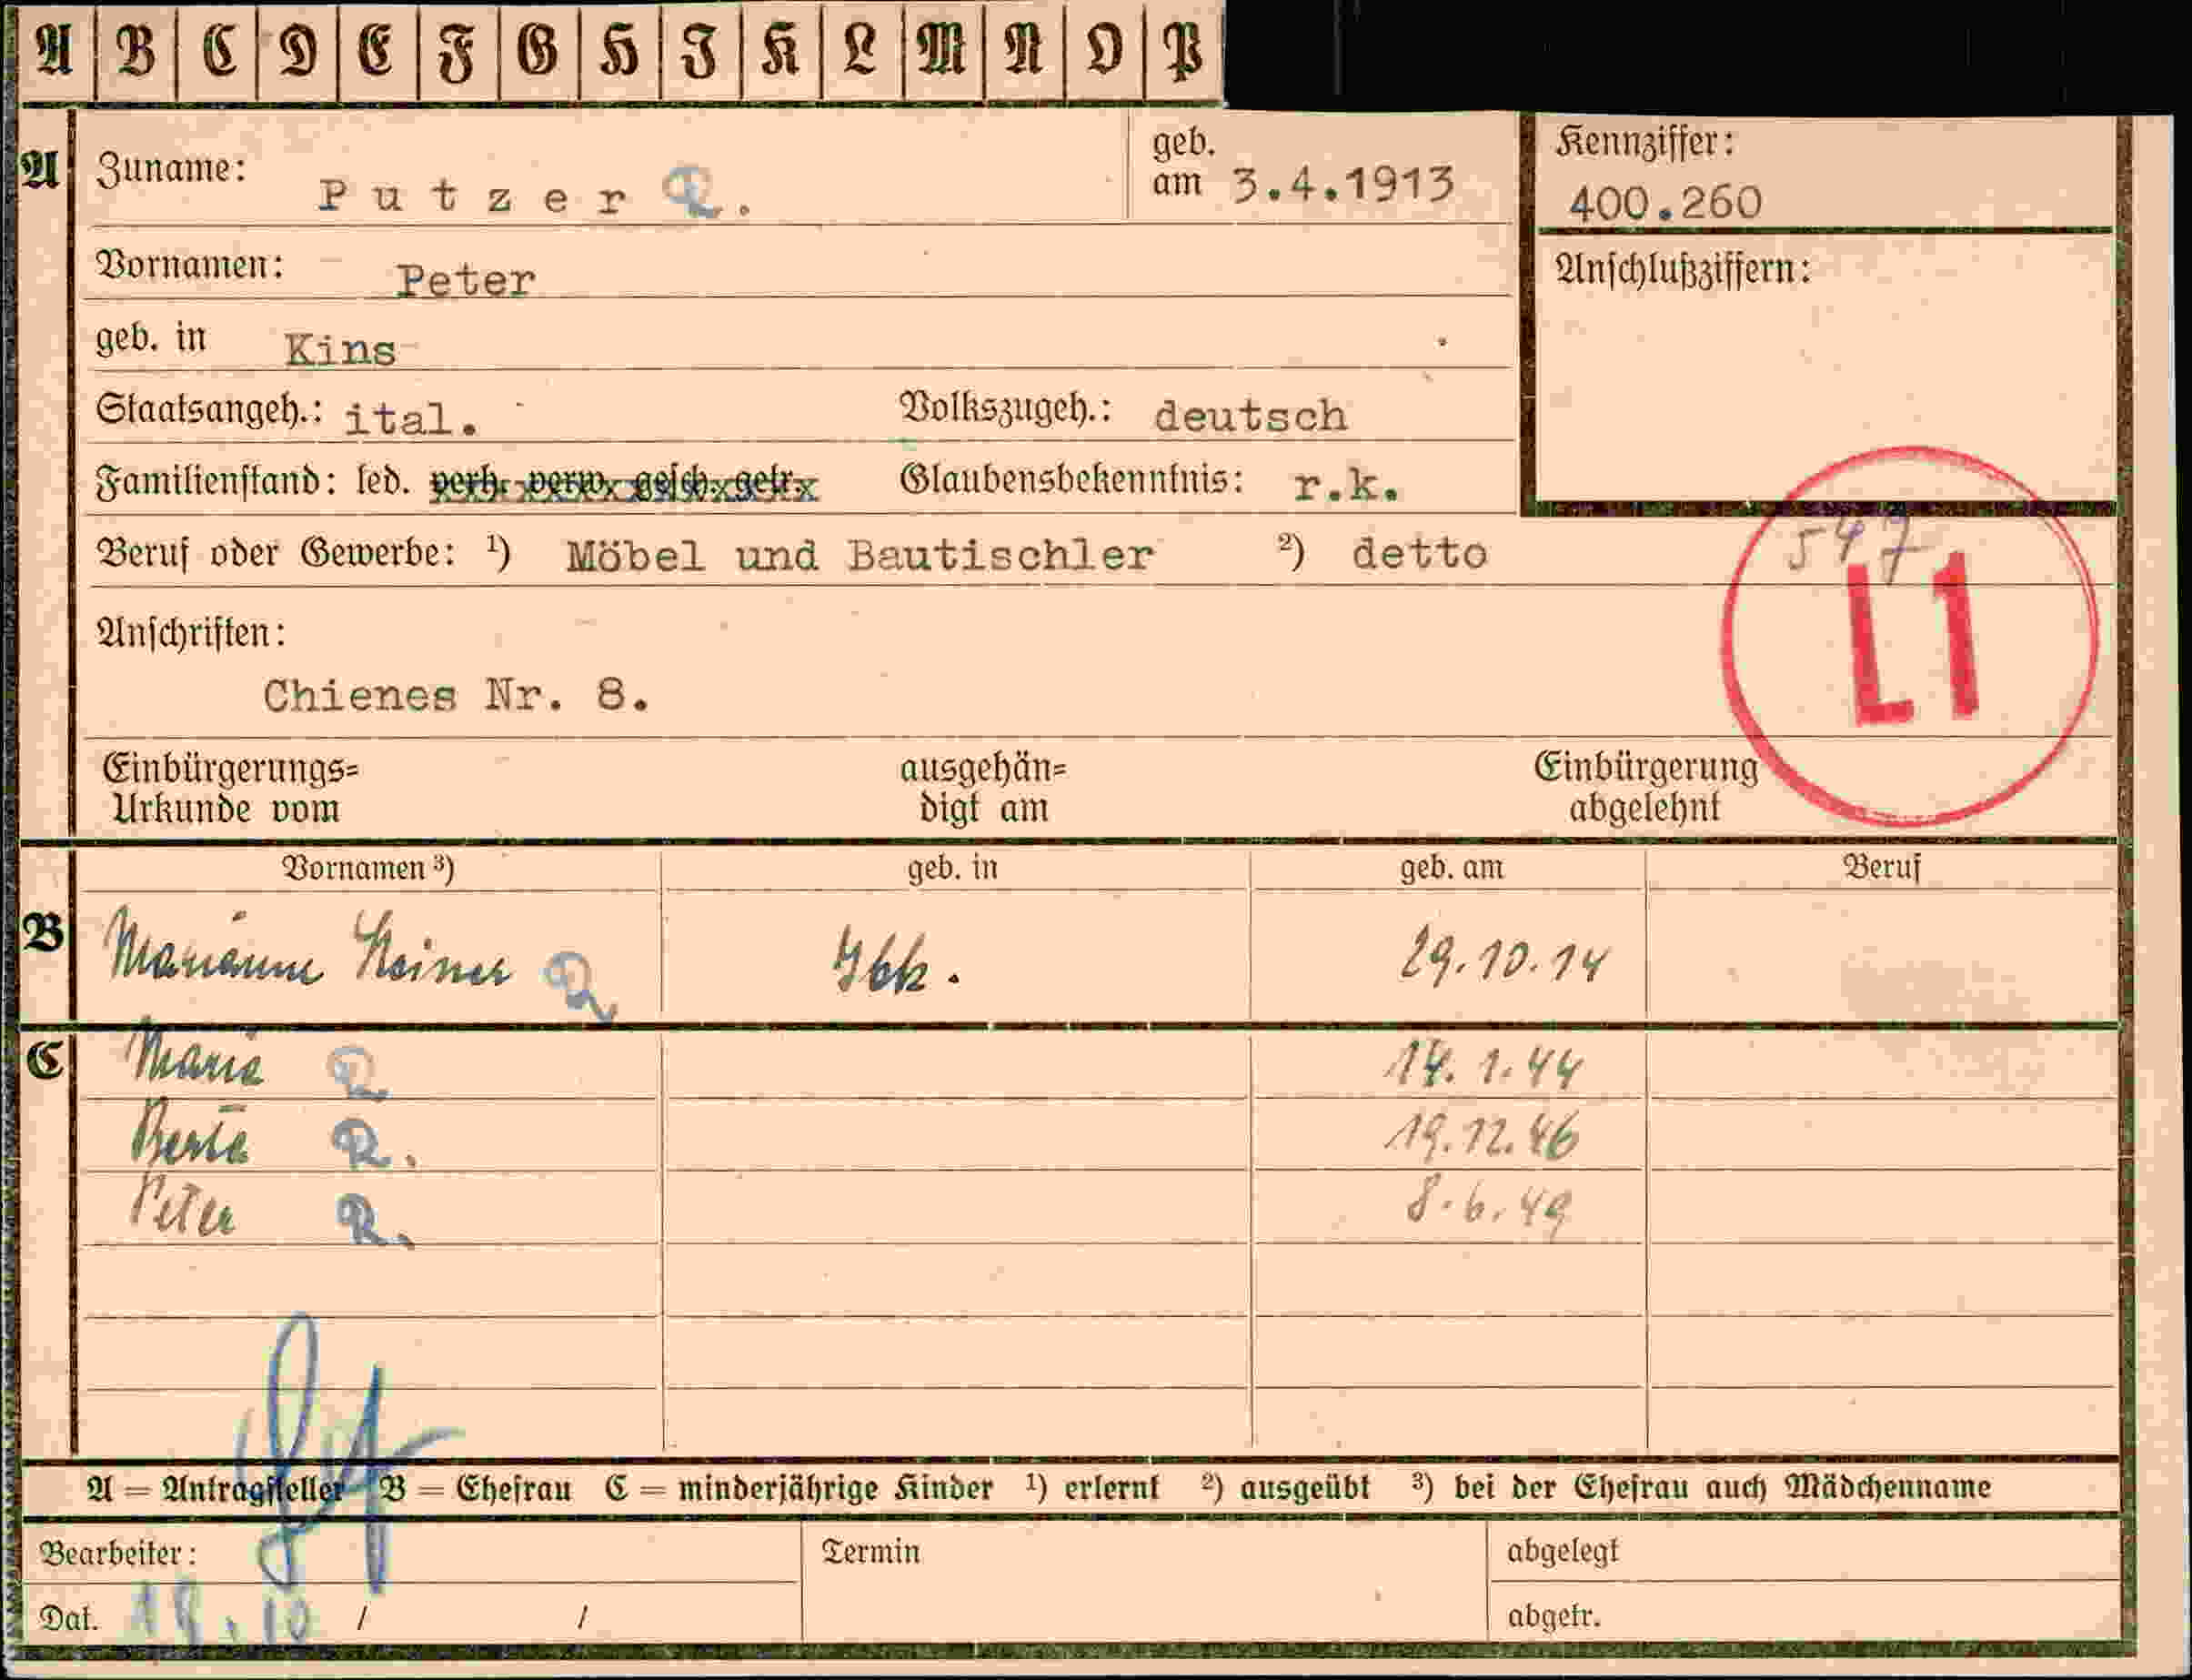 A B C D E F G H I K L M N O P
A Zuname: Putzer R. geb. am 3.4.1913 Kennziffer: 400.260
Vornamen: Peter Anschlußziffern:
geb. in Kins
Staatsangeh.: ital. Volkszugeh.: deutsch
Familienstand: led. verh. verw. gesch. getr. Glaubensbekenntnis: r.k.
547
Beruf oder Gewerbe: ¹) Möbel und Bautischler ²) detto
L1
Anschriften:
Chienes Nr. 8.
Einbürgerungs= ausgehän= Einbürgerung
Urkunde vom digt am abgelehnt
Vornamen ³) geb. in geb. am Beruf
B Marianne Steiner R Ibk. 29.10.14
C Maria R 14.1.44
Berta R. 19.12.46
Peter R. 8.6.49
A = Antragsteller B = Ehefrau C = minderjährige Kinder ¹) erlernt ²) ausgeübt ³) bei der Ehefrau auch Mädchenname
Bearbeiter: Termin abgelegt
Dat. 18.10 / / abgetr.